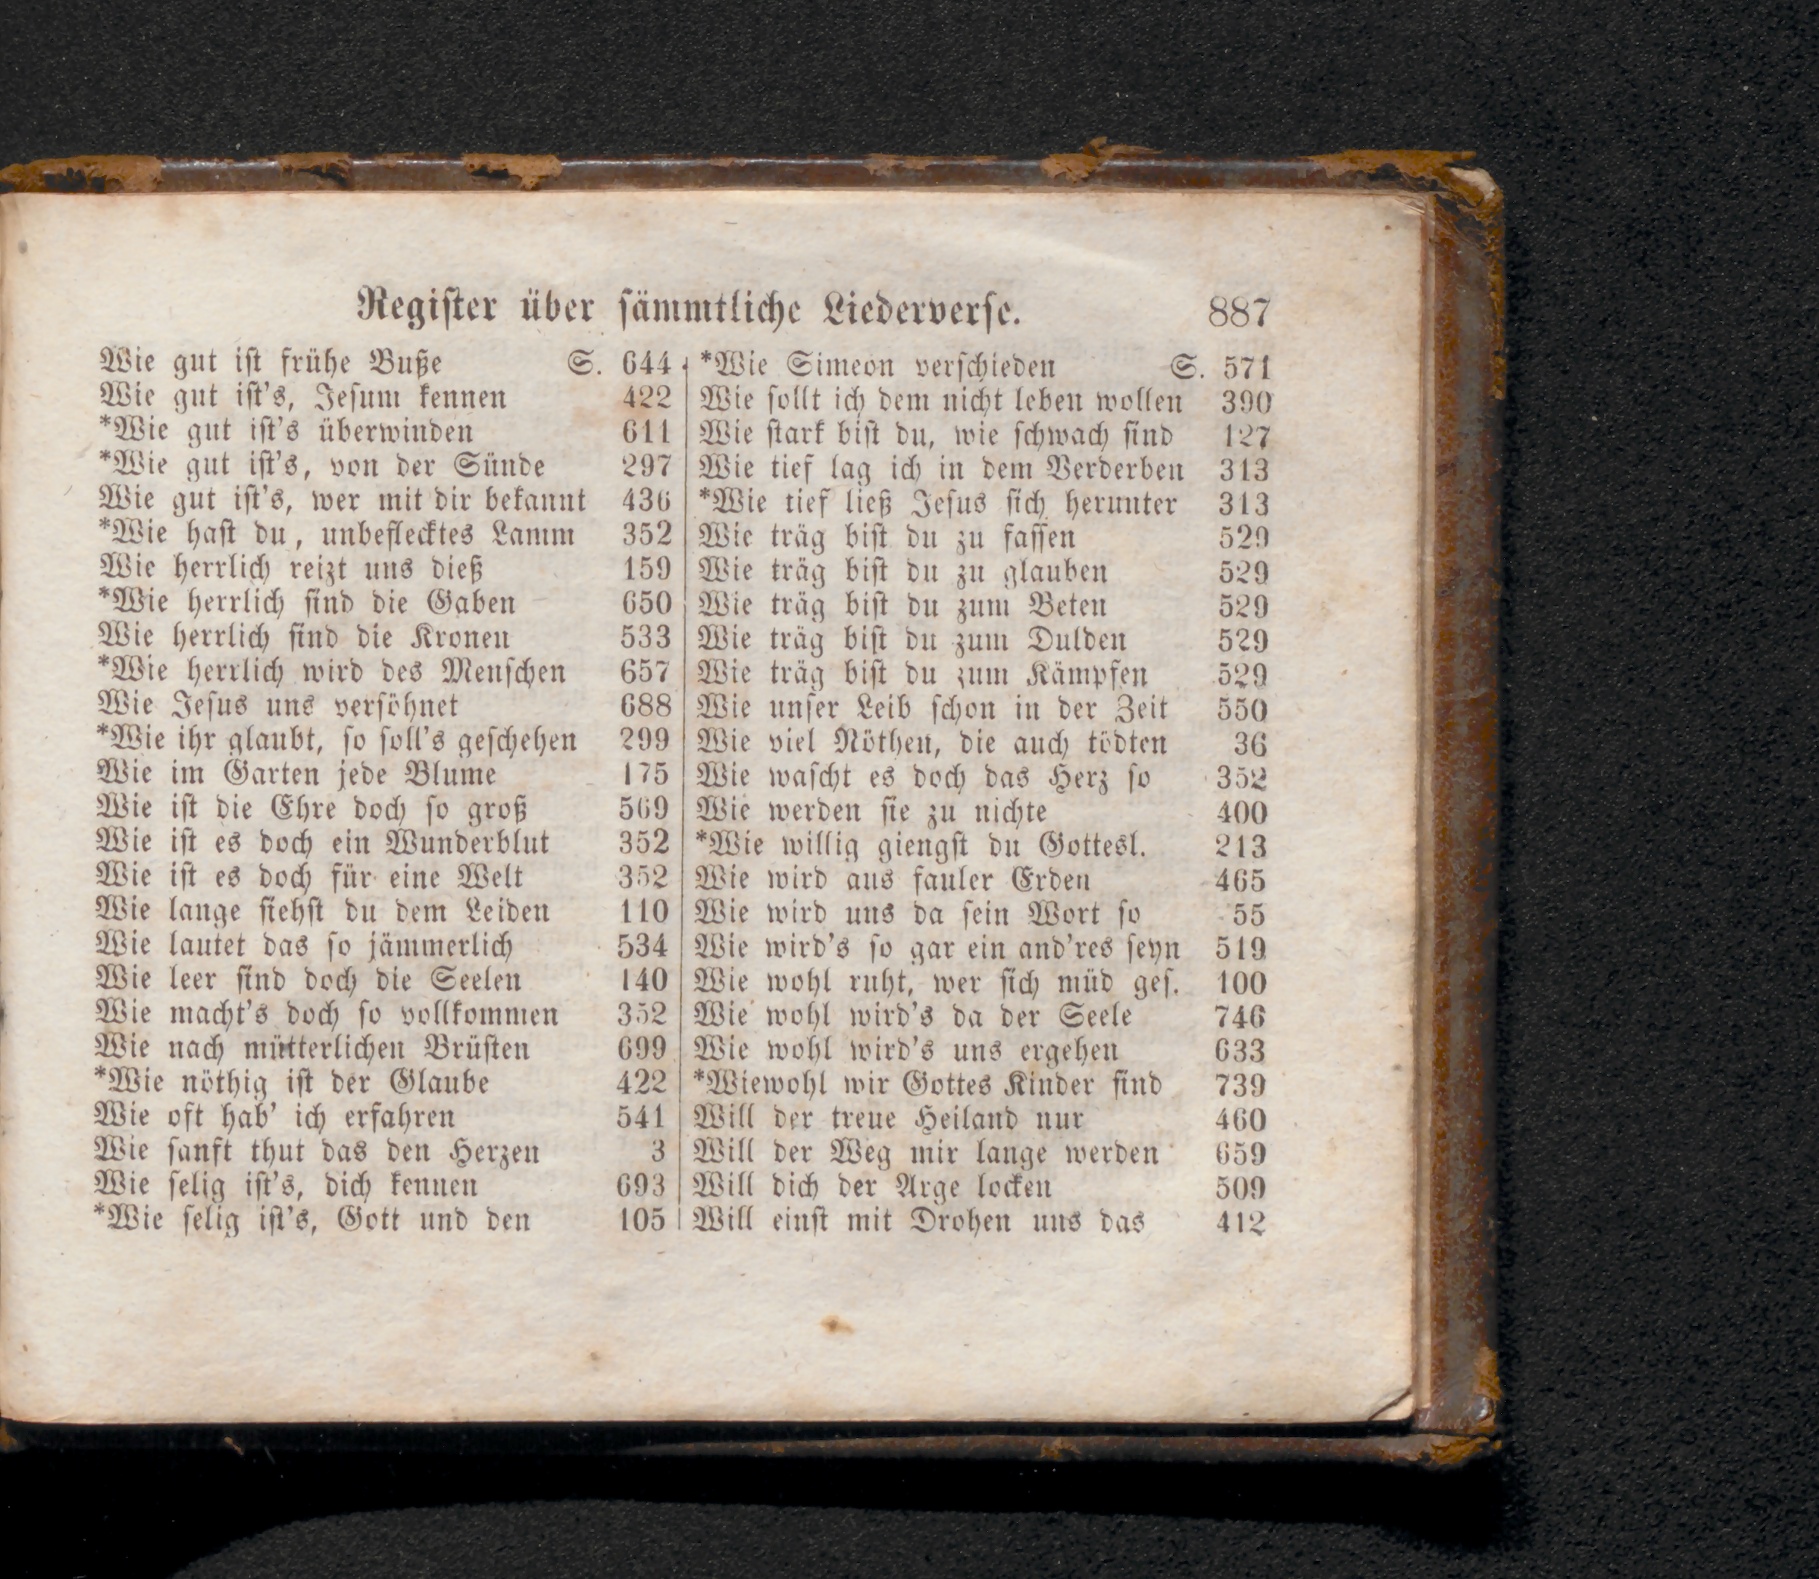 Register über sämmtliche Liederverse. 887
Wie gut ist frühe Buße S. 644
Wie gut ist's, Jesum kennen 422
*Wie gut ist's überwinden 611
*Wie gut ist's, von der Sünde 297
Wie gut ist's, wer mit dir bekannt 436
*Wie hast du, unbeflecktes Lamm 352
Wie herrlich reizt uns dieß 159
*Wie herrlich sind die Gaben 650
Wie herrlich sind die Kronen 533
*Wie herrlich wird des Menschen 657
Wie Jesus uns versöhnet 688
*Wie ihr glaubt, so soll's geschehen 299
Wie im Garten jede Blume 175
Wie ist die Ehre doch so groß 569
Wie ist es doch ein Wunderblut 352
Wie ist es doch für eine Welt 352
Wie lange siehst du dem Leiden 110
Wie lautet das so jämmerlich 534
Wie leer sind doch die Seelen 140
Wie macht's doch so vollkommen 352
Wie nach mütterlichen Brüsten 699
*Wie nöthig ist der Glaube 422
Wie oft hab' ich erfahren 541
Wie sanft thut das den Herzen 3
Wie selig ist's, dich kennen 693
*Wie selig ist's, Gott und den 105
*Wie Simeon verschieden S. 571
Wie sollt ich dem nicht leben wollen 390
Wie stark bist du, wie schwach sind 127
Wie tief lag ich in dem Verderben 313
*Wie tief ließ Jesus sich herunter 313
Wie träg bist du zu fassen 529
Wie träg bist du zu glauben 529
Wie träg bist du zum Beten 529
Wie träg bist du zum Dulden 529
Wie träg bist du zum Kämpfen 529
Wie unser Leib schon in der Zeit 550
Wie viel Nöthen, die auch tödten 36
Wie wascht es doch das Herz so 352
Wie werden sie zu nichte 400
*Wie willig giengst du Gottesl. 213
Wie wird aus fauler Erden 465
Wie wird uns da sein Wort so 55
Wie wird's so gar ein and'res seyn 519
Wie wohl ruht, wer sich müd ges. 100
Wie wohl wird's da der Seele 746
Wie wohl wird's uns ergehen 633
*Wiewohl wir Gottes Kinder sind 739
Will der treue Heiland nur 460
Will der Weg mir lange werden 659
Will dich der Arge locken 509
Will einst mit Drohen uns das 412